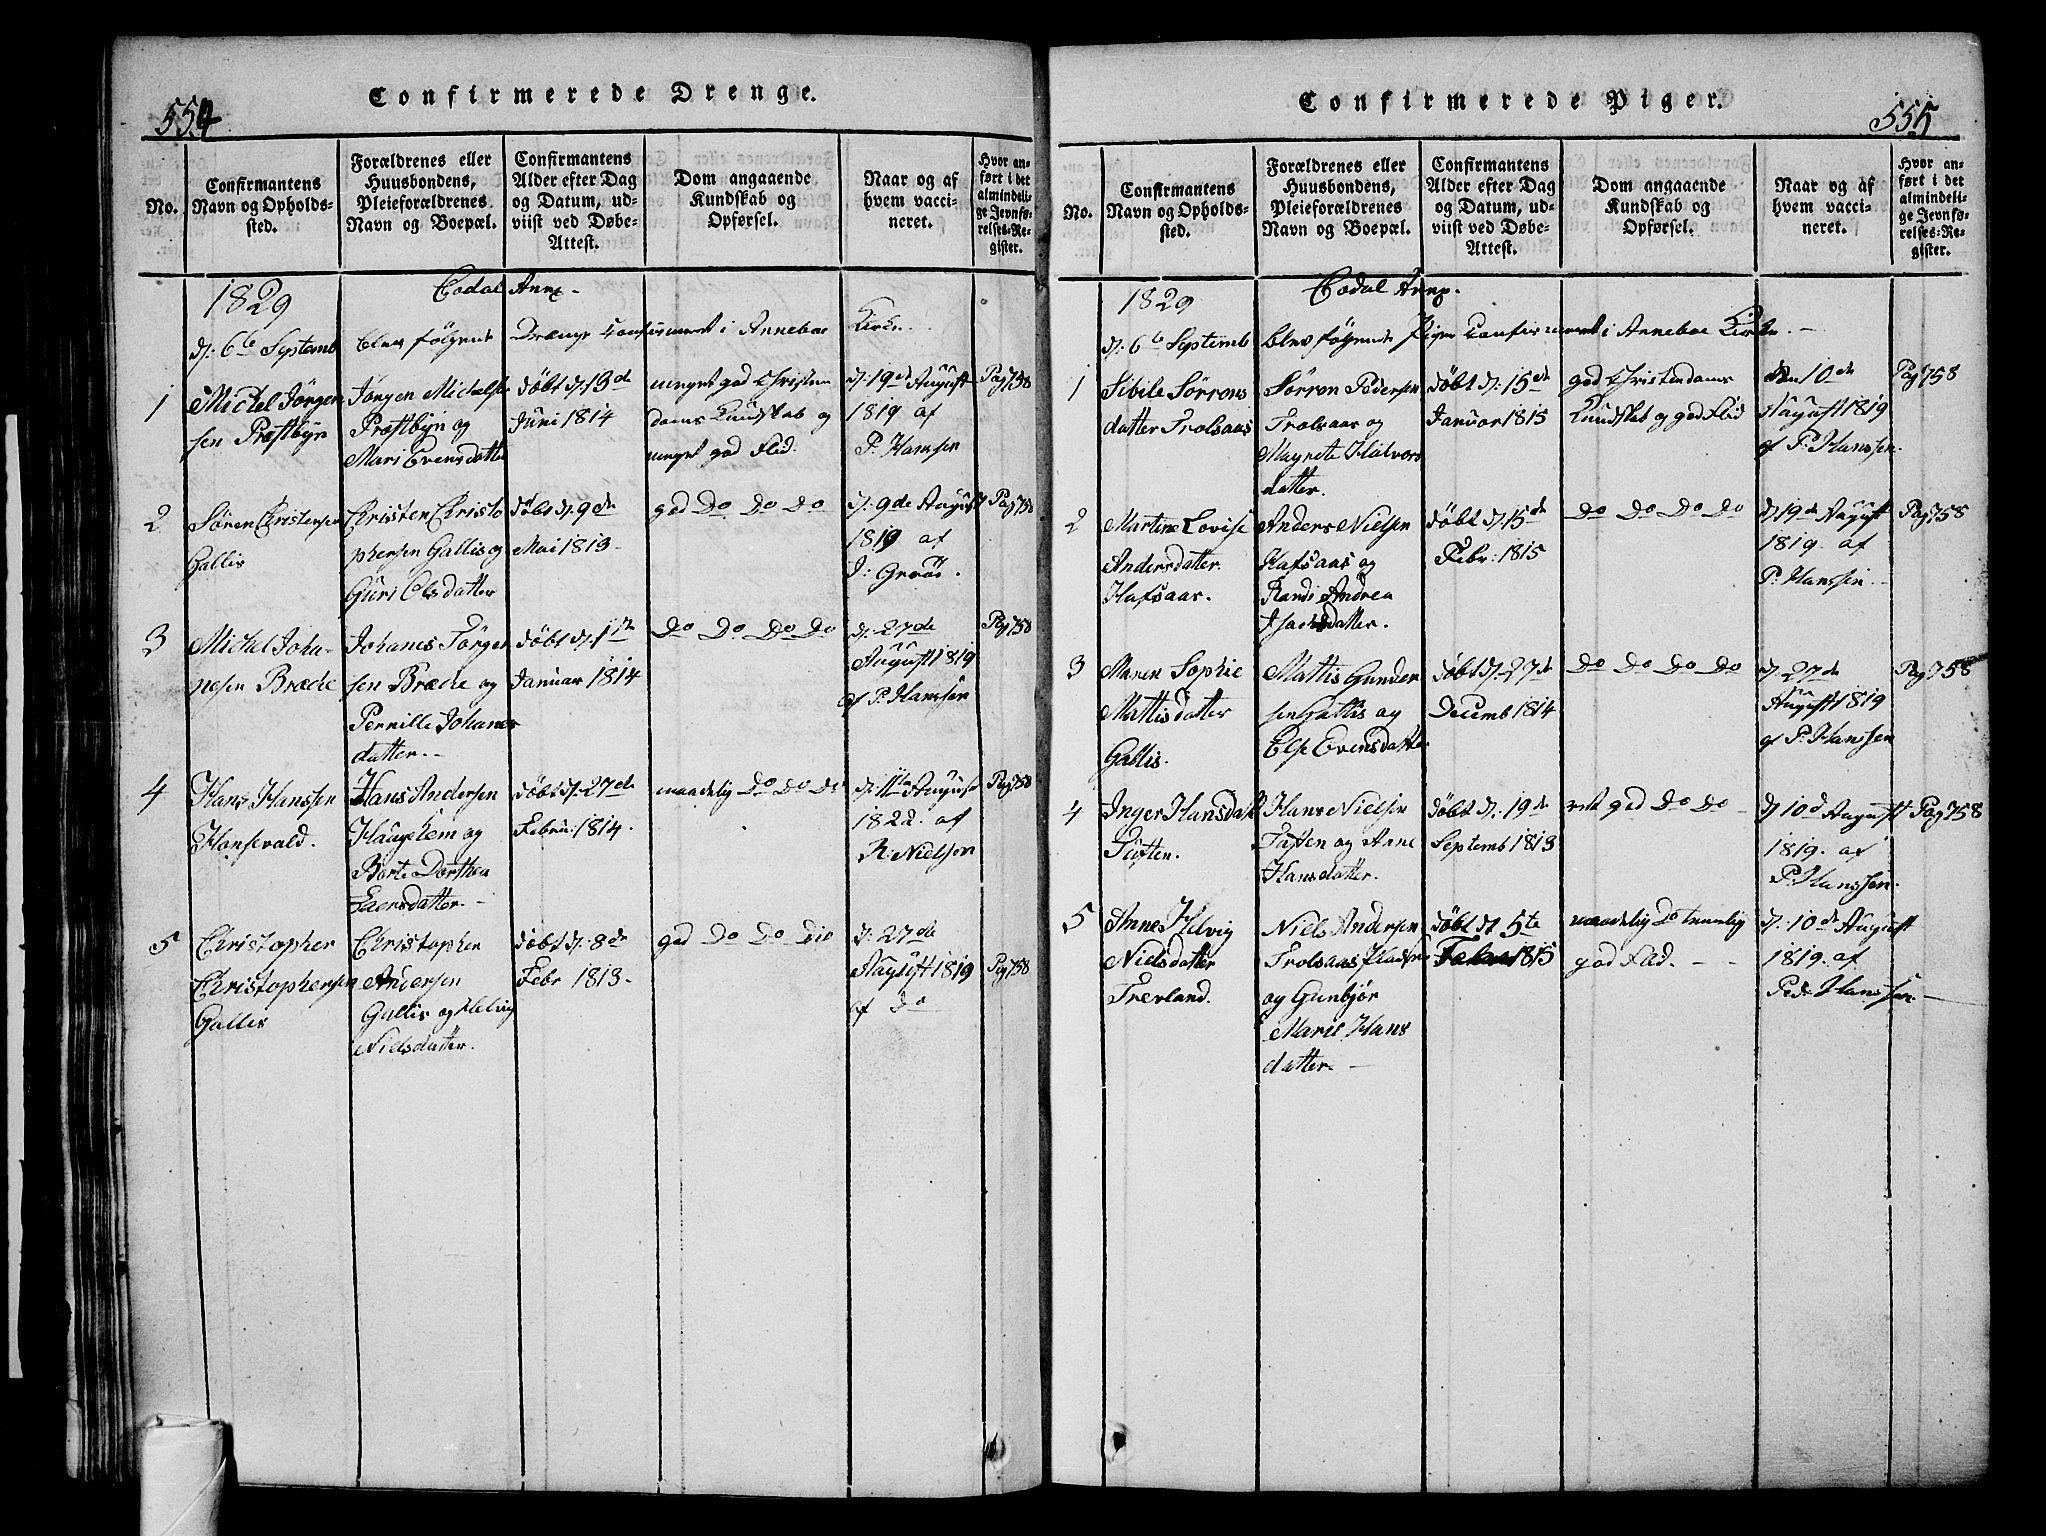 554
Confirmerede Drenge.
No.
Confirmantens
Navn og Opholds-
sted.
Forældrenes eller
Huusbondens,
Pleieforældrenes
Navn og Boepæl.
Confirmantens
Alder efter Dag
og Datum, ud-
viist ved Døbe-
Attest.
Dom angaaende
Kundskab og
Opførsel.
Naar og af
hvem vacci-
neret.
Hvor an-
ført i det
almindeli-
ge Jevnfø-
relses-Re-
gister.
1829
Annx.
d: 6te Septemb blev følgende Drenge Confirmeret i Anneboe Kirke.
1
Michel Jørgen
sen Præstbÿn
Jørgen Michelse
Præstbÿn og
Mari Evensdatte
døbt d: 13de
Juni 1814
meget god Christen
doms Kundskab og
meget god Flid.
d: 19de August
1819 af
P. Hanssen
Pag 758
2
Søren Christensen
Gallis
Christen Christo
phersen Gallis og
Guri Olsdatter
døbt d: 9de
Mai 1813
god Do Do Do
d: 9de August
1819 af
Pag 758
3
Michel Joha-
nesen Bræde
Johanes Jørgen
sen Bræde og
Pernille Johanes
datter.-
døbt d: 1ste
Januar 1814
Do Do Do Do
d: 27de
August 1819
af P. Hanssen
Pag 758
4
Hans Hanssen
Hansevald.
Hans Andersen
Haugelem og
Borte Dorthea
Laersdatter.-
døbt d: 27de
Febru: 1814.
maadelig Do Do Do
d: 11te August
1822. af
R. Nielsen
Pag 758
5
Christopher
Christophersen
Gallis
Christopher
Andersen
Gallis og Helvig
Nielsdatter.
døbt d: 8de
Febr 1813.
god Do Do Dio
d: 27de
August 1819
af Do
Pag 758
555
Confirmerede Piger.
No.
Confirmantens
Navn og Opholds-
sted.
Forældrenes eller
Huusbondens,
Pleieforældrenes
Navn og Boepæl.
Confirmantens
Alder efter Dag
og Datum, ud-
viist ved Døbe-
Attest.
Dom angaaende
Kundskab og
Opførsel.
Naar og af
hvem vacci-
neret.
Hvor an-
ført i det
almindeli-
ge Jevnfø-
relses-Re-
gister.
1829
Annx.
d: 6te Septemb blev følgende Piger Confirmeret i Anneboe Kirke.-
1
Sibile Sørrens
datter Trolsaas
Sørren Pedersen
Trolsaas og
Magnete Halvors
datter.
døbt d: 15de
Januar 1815
god Christendoms
Kundskab og god Flid
den 10de
August 1819
af P. Hanssen.
Pag 758
2
Martine Lovise
Andersdatter
Hafsaas.
Anders Nielsen
Hafsaas og
Randi Andrea
Isachsdatter.
døbt d: 15de
Febr: 1815
Do Do Do Do
d: 19de August
1819. af
P. Hanssen
Pag 758
3
Maren Sophie
Mattisdatter
Gallis.
Mattis Gunder
sen Gallis og
Else Evensdatter
døbt d: 27de
Decemb 1814
Do Do Do Do
d: 27de
August 1819
af P. Hanssen
Pag 758
4
Inger Hansdatt
Tuften.
Hans Nielsen
Tuften og Anne
Hansdatter.
døbt d: 19de
Septemb 1813
ret god Do Do
d 10d August
1819. af
P. Hanssen.
Pag 758
5
Anne Helvig
Nielsdatter
Trevland.
Niels Andersen
Trolsaas Pladsen
og Gunbjør
Marie Hans
datter.-
døbt d 5te
1815
maadelig Do temelig
god Flid.
d: 10de August
1819. af
Ped: Hanssen.-